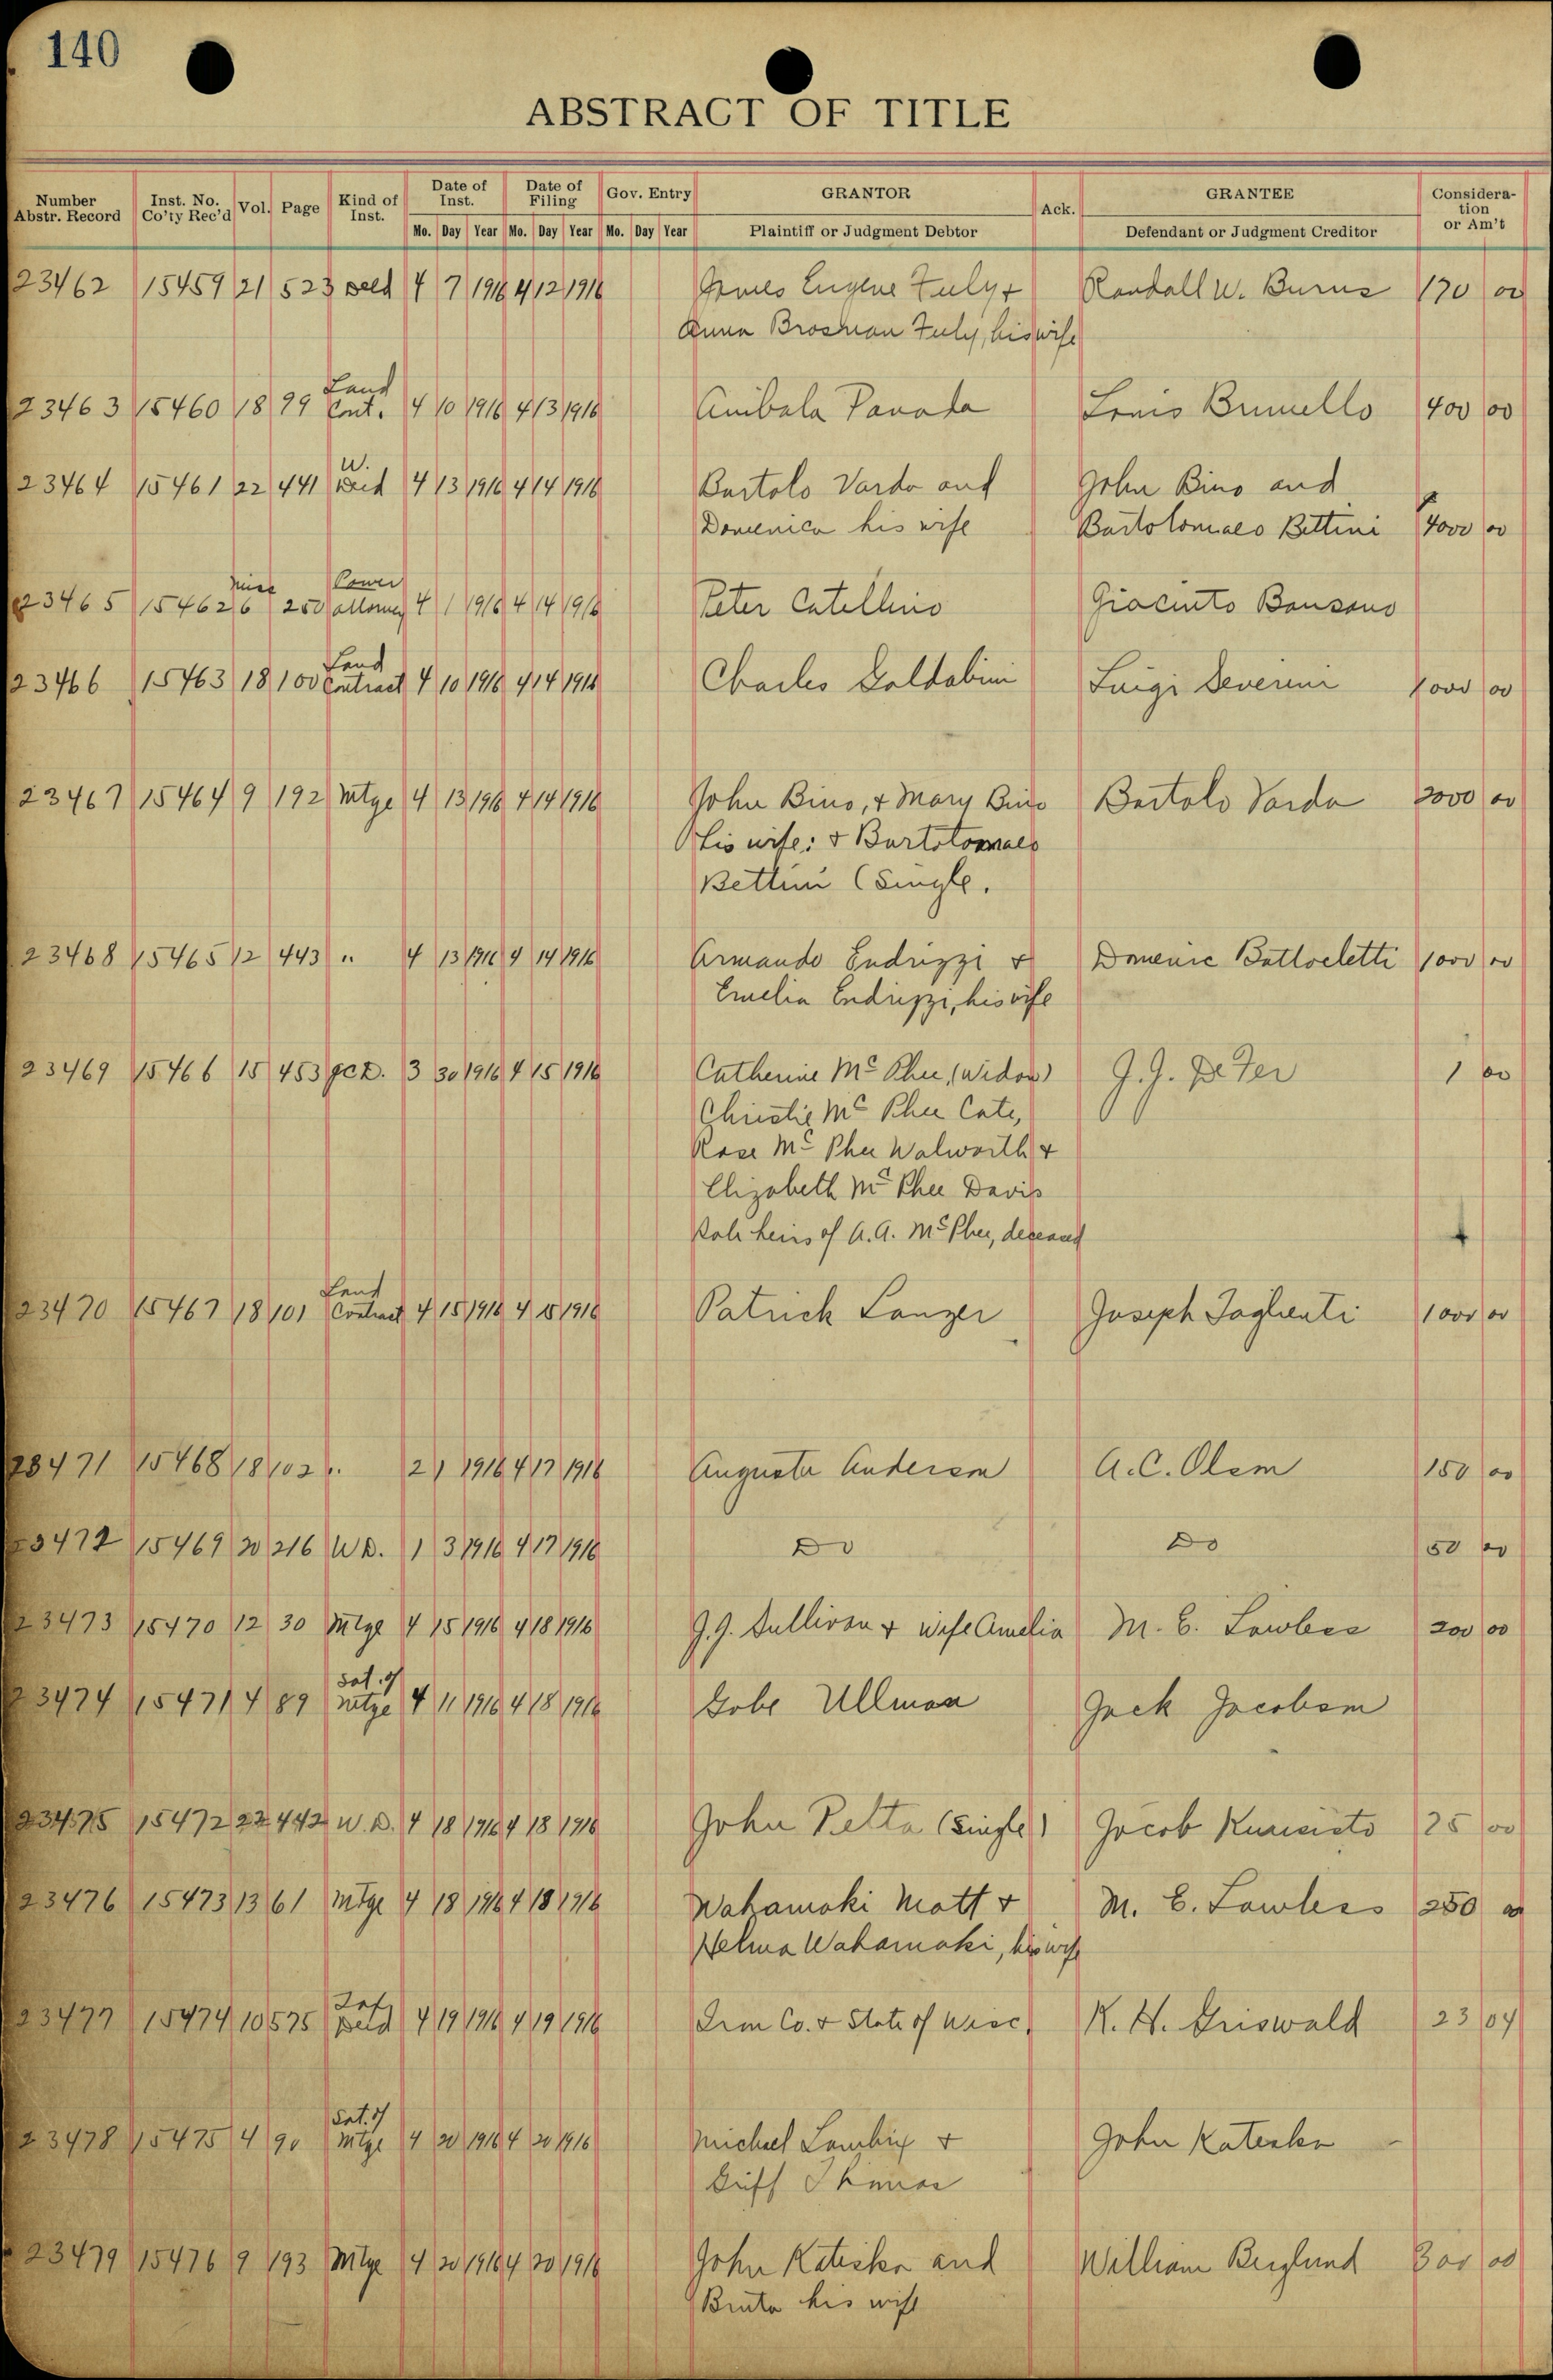 140
ABSTRACT OF TITLE
Number Abstr. Record Inst. No. Co'ty Rec'd Vol. Page Kind of Inst. Date of Inst. Date of Filing Gov. Entry GRANTOR Ack. GRANTEE Considera-tion or Am't
Mo. Day Year Mo. Day Year Mo. Day Year Plaintiff or Judgment Debtor Defendant or Judgment Creditor
23462 15459 21 523 Deed 4 7 1916 4 12 1916 James Eugene Fuly + Randall W. Burns 170 00
Anna Brosnan Fuly, his wife
Land
23463 15460 18 99 Cont. 4 10 1916 4 13 1916 Anibala Panada Louis Brunello 400 00
W.
23464 15461 22 441 Deed 4 13 1916 4 14 1916 Bartolo Varda and John Bino and
Domenica his wife Bartolomaeo Bettini 4000 00
Misc Power
23465 15462 6 250 attorney 4 1 1916 4 14 1916 Peter Catellino Giacinto Bonsano
Land
23466 15463 18 100 Contract 4 10 1916 4 14 1916 Charles Goldabini Luigi Severini 1000 00
23467 15464 9 192 Mtge 4 13 1916 4 14 1916 John Bino, + Mary Bino Bartolo Varda 2000 00
his wife; + Bartolomaeo
Bettini (Single.
23468 15465 12 443 " 4 13 1916 4 14 1916 Armando Endrizzi + Domenic Battocletti 1000 00
Emelia Endrizzi, his wife
23469 15466 15 453 QCD. 3 30 1916 4 15 1916 Catherine McPhee, (widow) J.J. DeFer 1 00
Christie McPhee Cate,
Rose McPhee Walworth +
Elizabeth McPhee Davis
Sole heirs of A.A. McPhee, deceased
Land
23470 15467 18 101 Contract 4 15 1916 4 15 1916 Patrick Lanzer Joseph Taglienti 1000 00
23471 15468 18 102 " 2 1 1916 4 17 1916 Augusta Anderson A.C. Olson 150 00
23472 15469 20 216 W.D. 1 3 1916 4 17 1916 Do Do 50 00
23473 15470 12 30 Mtge 4 15 1916 4 18 1916 J.J. Sullivan + wife Amelia M. E. Lawless 200 00
Sat. of
23474 15471 4 89 Mtge 4 11 1916 4 18 1916 Gobe Ullman Jack Jacobson
23475 15472 22 442 W.D. 4 18 1916 4 18 1916 John Pelta (single) Jacob 25 00
23476 15473 13 61 Mtge 4 18 1916 4 18 1916 Wahamaki Matt + M. E. Lawless 250 00
Helma Wahamaki, his wife
Tax
23477 15474 10 575 Deed 4 19 1916 4 19 1916 Iron Co. + State of Wisc. R. H. Griswald 23 04
Sat. of
23478 15475 4 90 Mtge 4 20 1916 4 20 1916 Michael Lambix + John Kateska
Griff Thomas
23479 15476 9 193 Mtge 4 20 1916 4 20 1916 John Kateska and William Berglund 300 00
Bruta his wife